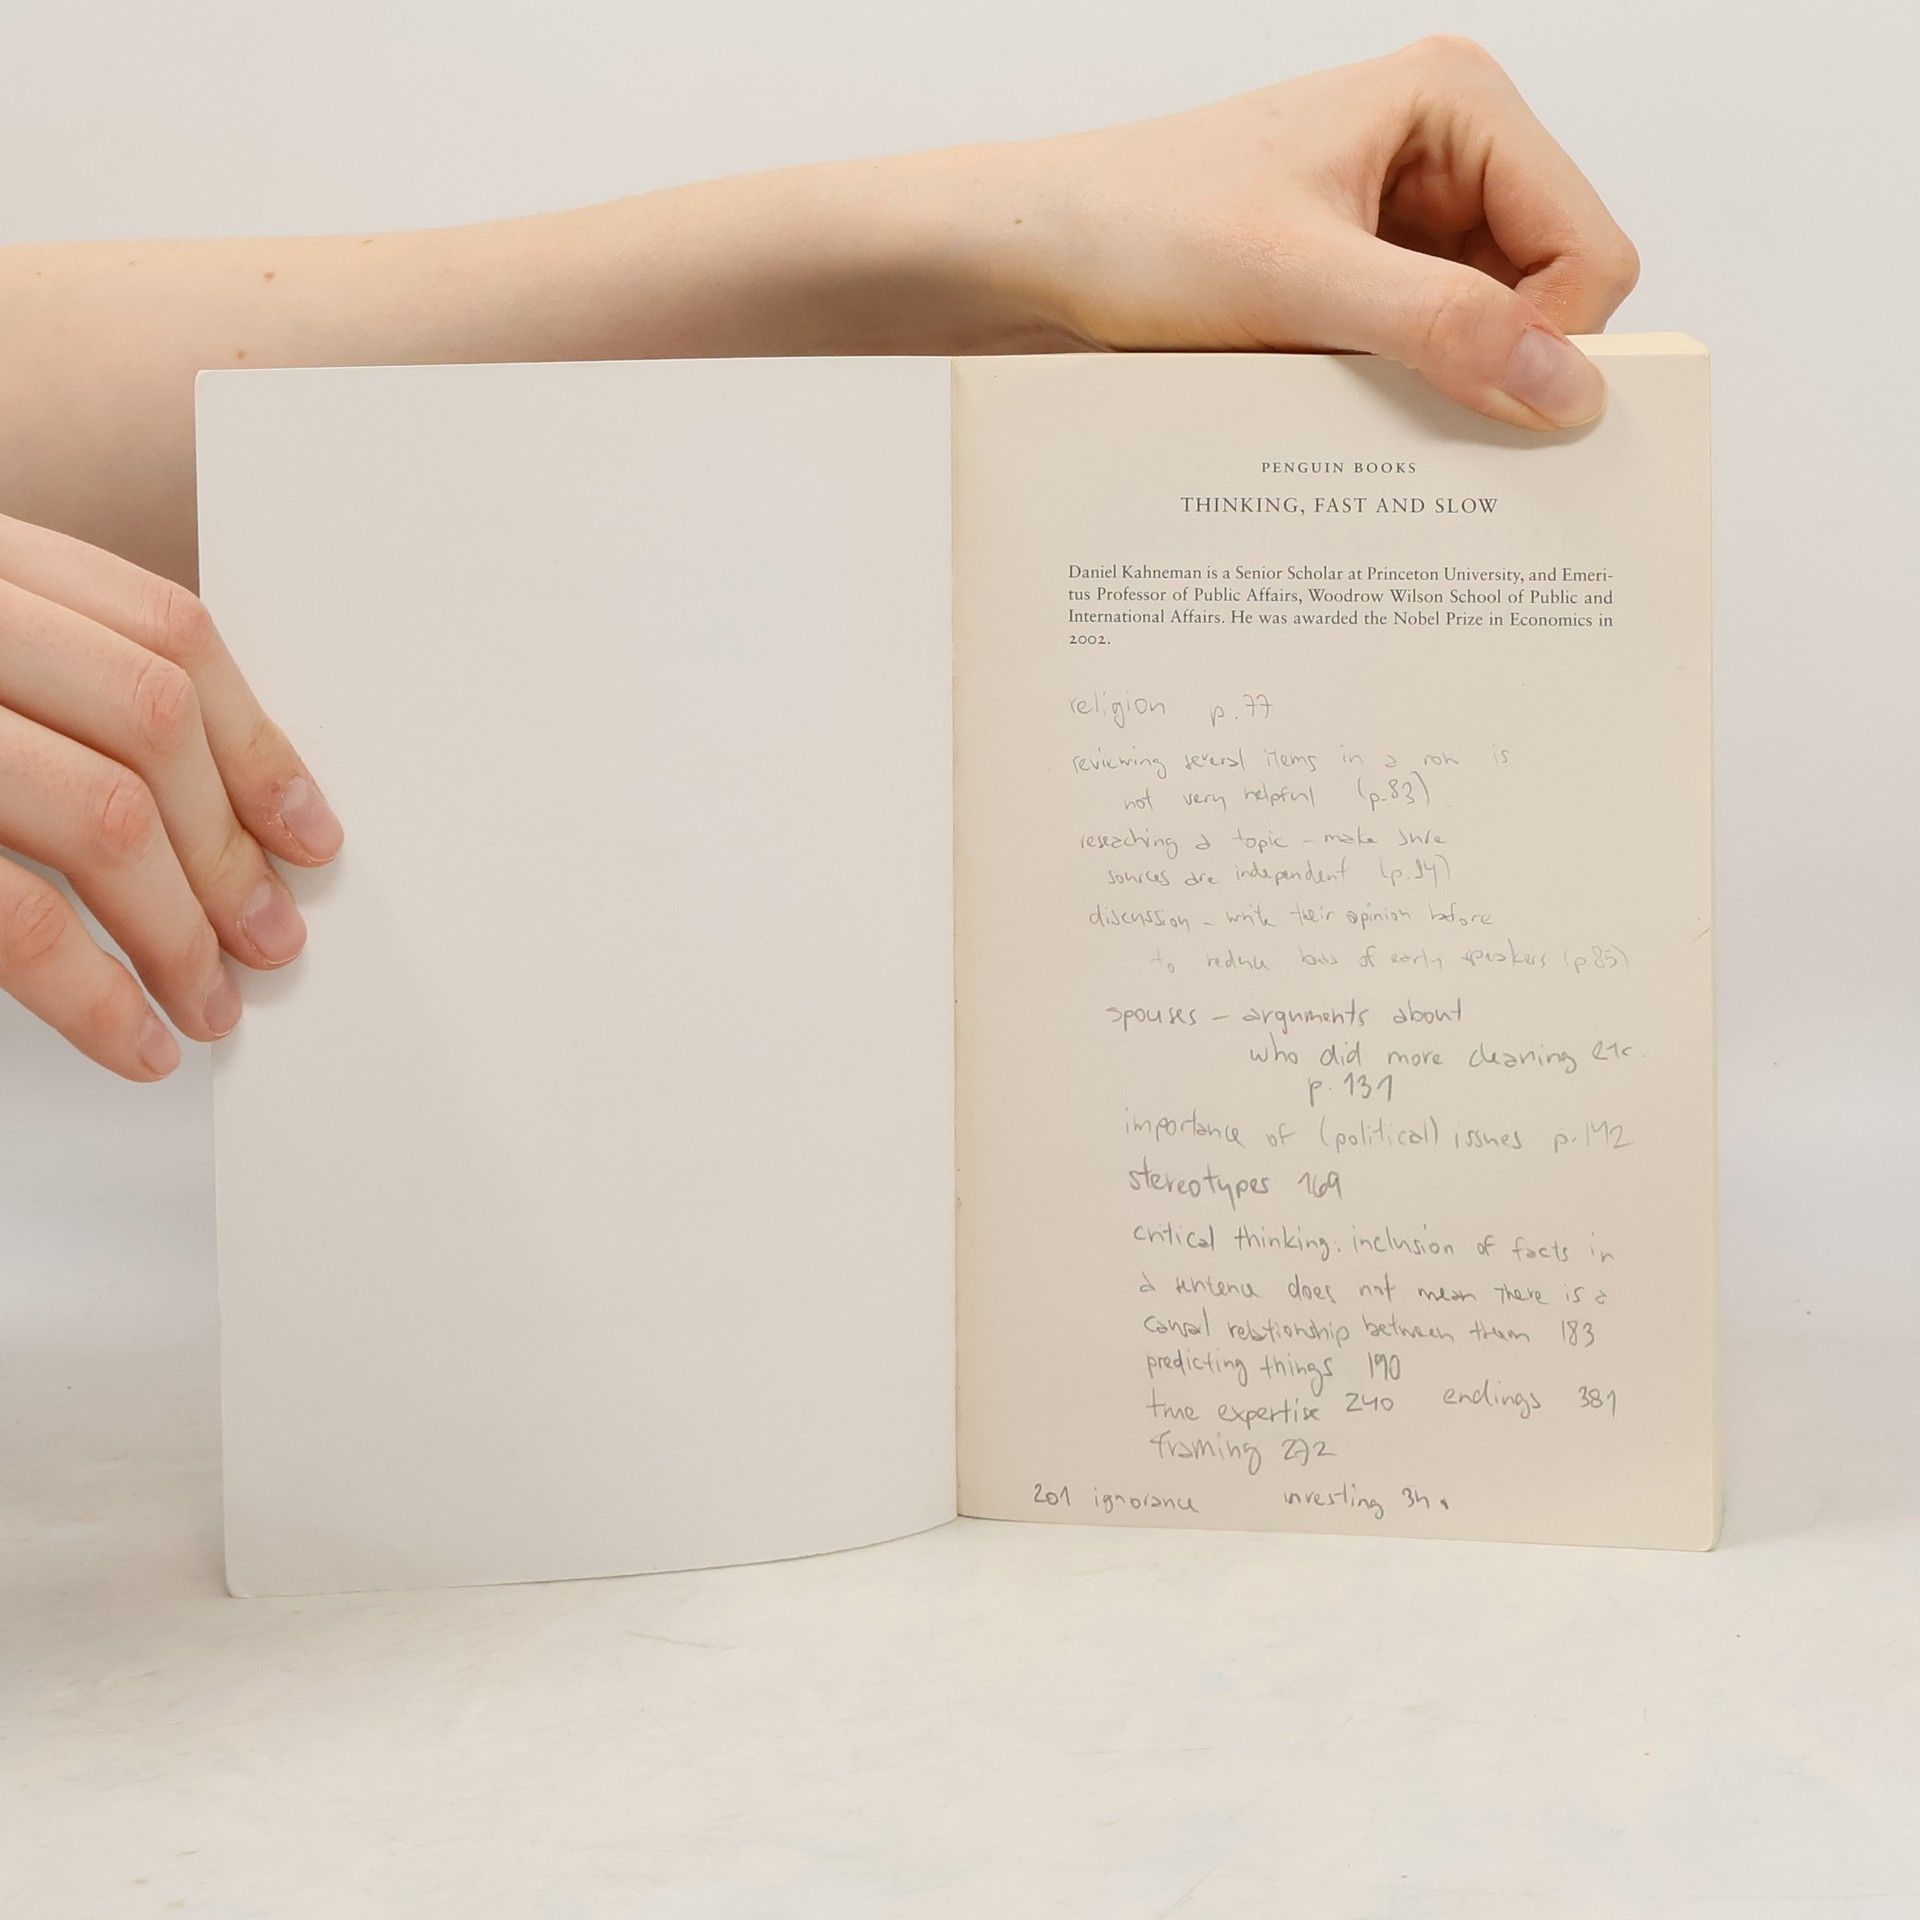 PENGUIN BOOKS
THINKING, FAST AND SLOW
Daniel Kahneman is a Senior Scholar at Princeton University, and Emeri-
tus Professor of Public Affairs, Woodrow Wilson School of Public and
International Affairs. He was awarded the Nobel Prize in Economics in
2002.
religion p.77
reviewing several items in a row is
not very helpful (p.83)
reseaching a topic – make sure
sources are independent
discussion – write their opinion before
to reduce bias of early speakers (p.85)
spouses – arguments about
who did more cleaning etc.
p. 131
importance of (political) issues p.142
stereotypes 169
critical thinking: inclusion of facts in
a sentence does not mean there is a
causal relationship between them 183
predicting things 190
true expertise 240 endings 381
framing 272
201 ignorance investing